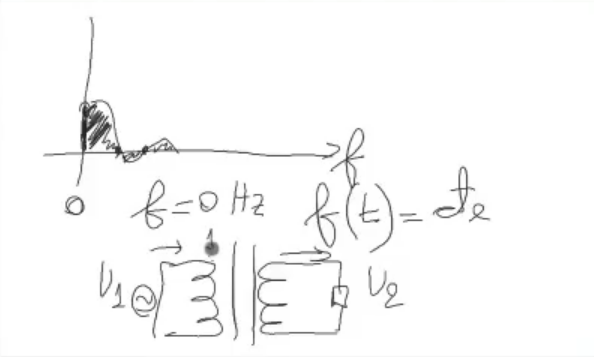 f
0
f=0 Hz f(t)=
V1 V2